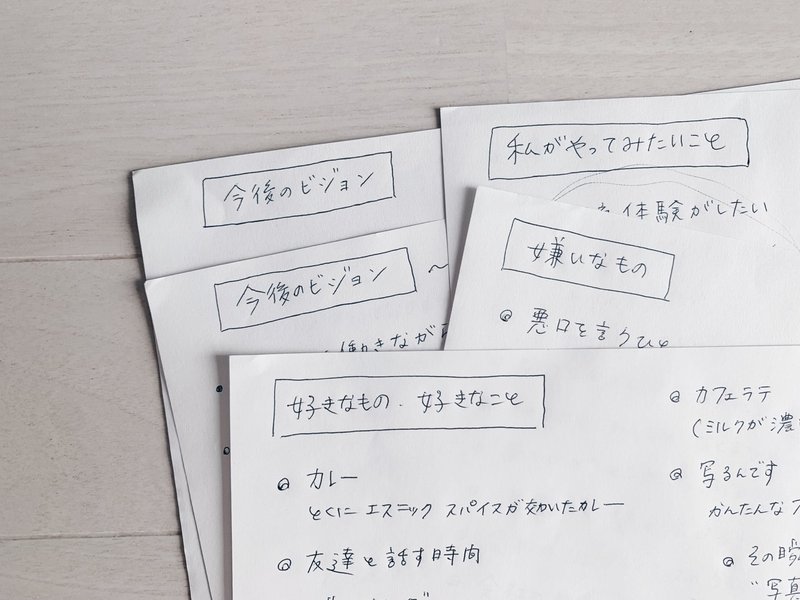 今後のビジョン
私がやってみたいこと
体験がしたい
今後のビジョン 〜
働きなが
嫌いなもの
@ 悪口を言うひと
好きなもの、好きなこと
@ カレー
とくに エスニック スパイスが効いたカレー
@ 友達と話す時間
@ カフェラテ
(ミルクが濃
@ 写るんです
かんたんな
@ その瞬
"写真